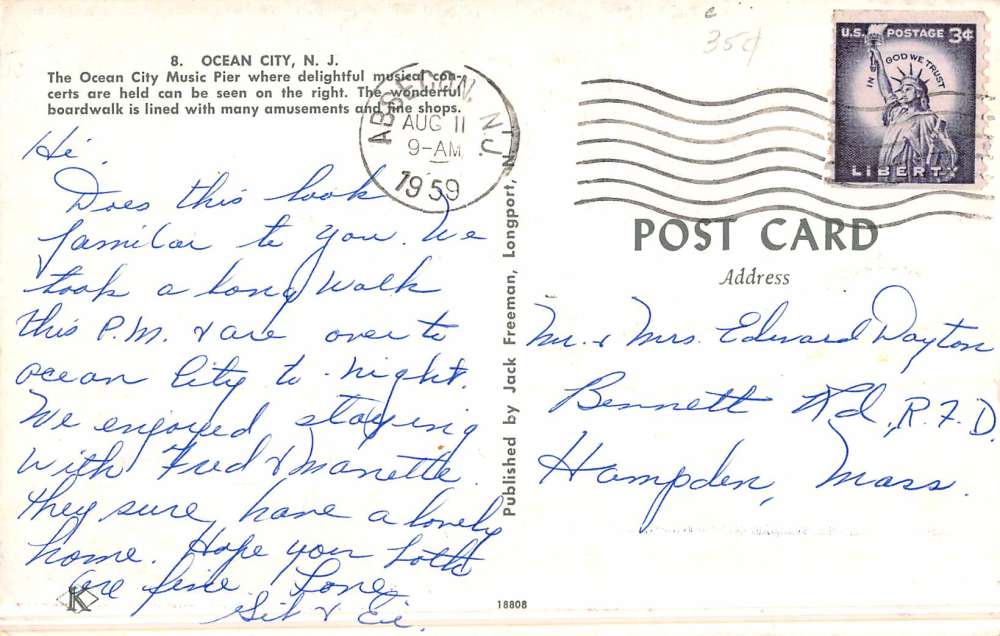 8. OCEAN CITY, N. J.
The Ocean City Music Pier where delightful musical con-
certs are held can be seen on the right. The wonderful
boardwalk is lined with many amusements and fine shops.
Hi.
Does this look
familiar to you. We
took a long walk
this P.M. & are over to
ocean City to-night.
We enjoyed staying
with Fred & Manette.
They sure have a lovely
home. Hope you both
are fine. Love,
Sil &
K
Published by Jack Freeman, Longport, N. J.
18808
ABSECON, N.J.
AUG 11
9-AM
1959
35¢
U.S. POSTAGE 3¢
IN GOD WE TRUST
LIBERTY
POST CARD
Address
Mr. & Mrs. Edward Dayton
Bennett Rd, R.F.D.
Hampden, Mass.